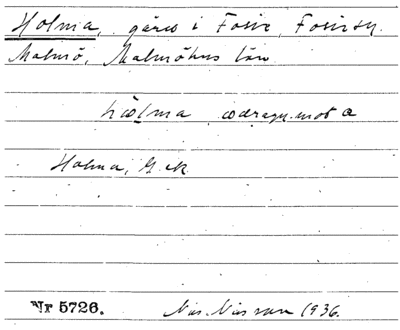 Holma, gård i Fosie, Fosie sn.
Malmö, Malmöhus län
hɷlma ɷdragn. mot a
Holma, G. ek
Nr 5726. Nils Nilsson 1936.